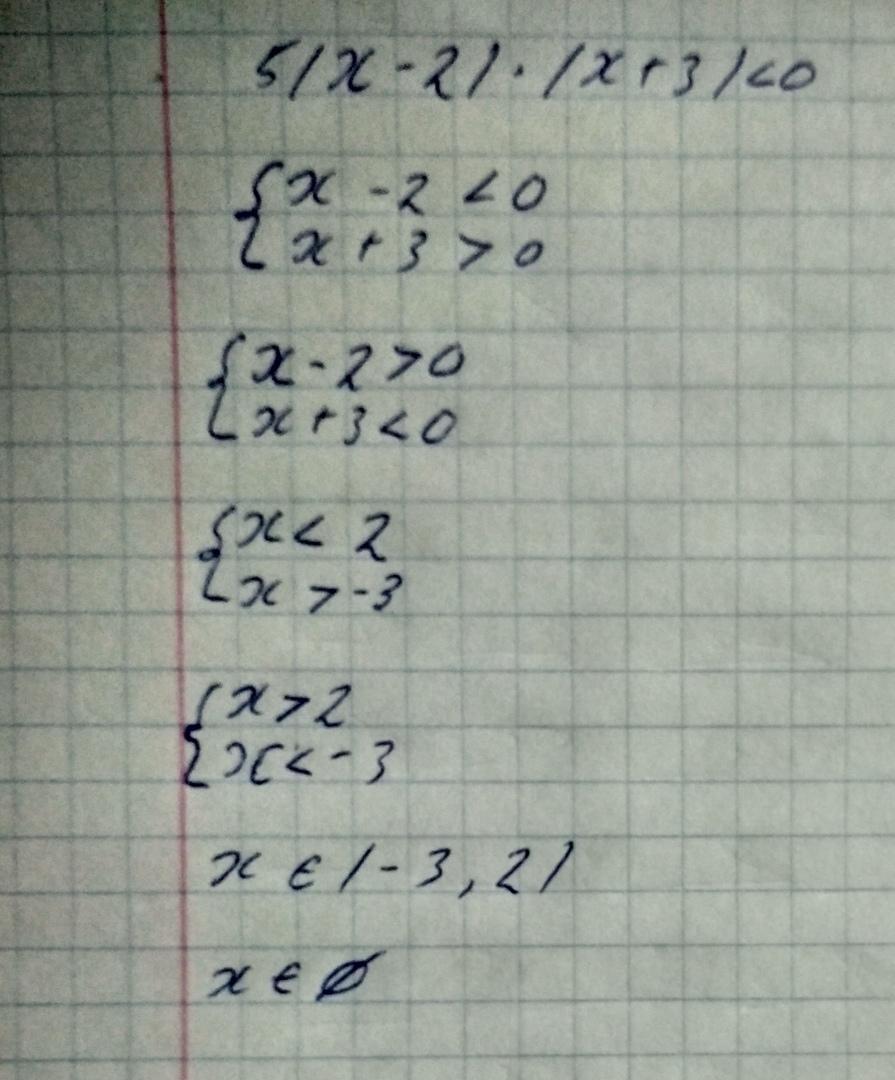 5(x-2)·(x+3)<0
{x-2<0
{x+3>0
{x-2>0
{x+3<0
{x<2
{x>-3
{x>2
{x<-3
x∈(-3,2)
x∈∅